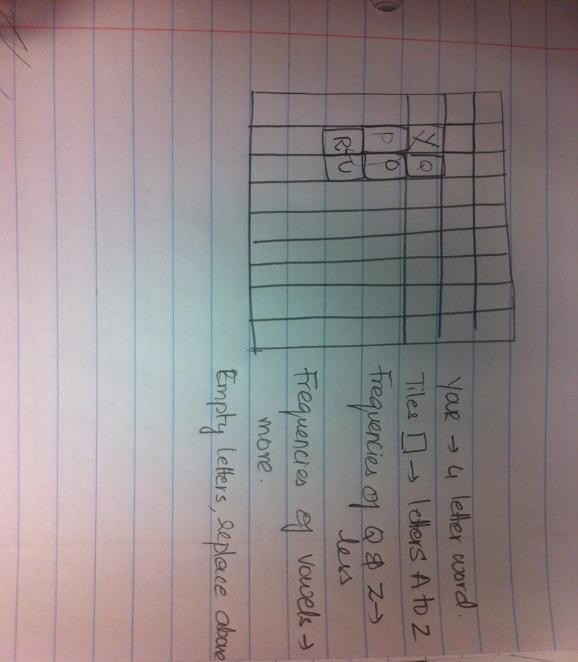 Y Q
P O
R U
Your → 4 letter word.
Tiles → letters A to Z
Frequencies of Q & Z →
less
Frequencies of vowels →
more.
Empty letters, replace above